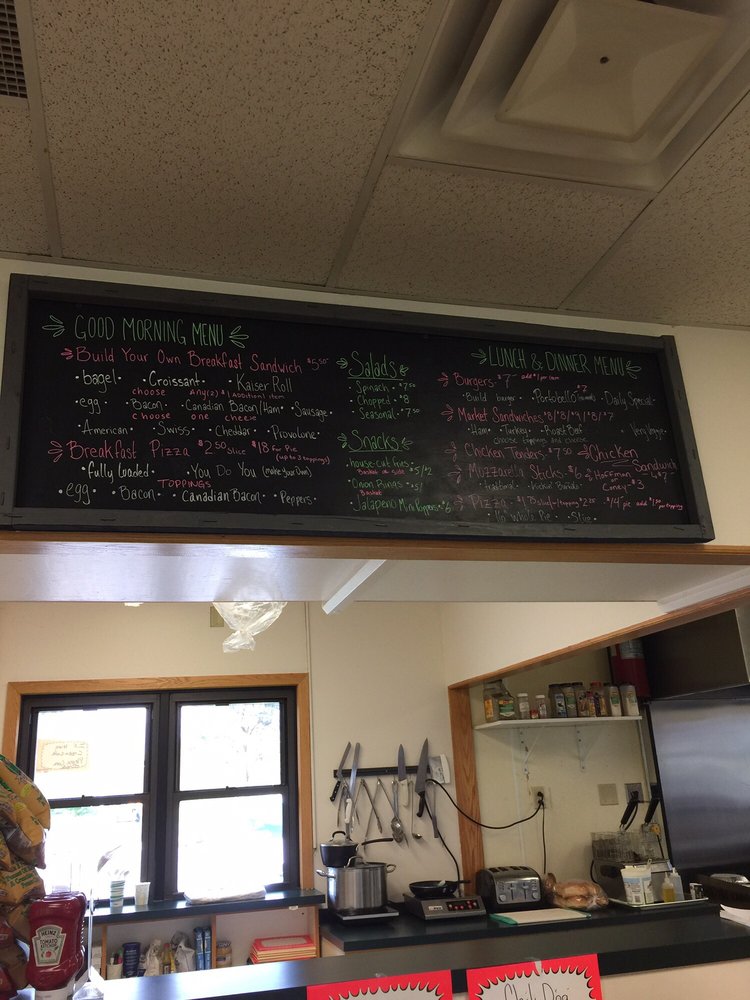 GOOD MORNING MENU
Build Your Own Breakfast Sandwich $5.50
• bagel • Croissant • Kaiser Roll
choose any(2) $1 additional item
• egg • Bacon • Canadian Bacon/Ham • Sausage
choose one cheese
• American • Swiss • Cheddar • Provolone
Breakfast Pizza $2.50 slice $18 for Pie
(up to 3 toppings)
• fully loaded • You Do You (make your own)
TOPPINGS
• egg • Bacon • Canadian Bacon • Peppers •
Salads
Spinach • $7.50
Chopped • $8
Seasonal • $7.50
Snacks
• house-cut Fries
Basket or Side $5/$2
Onion Rings • $5/
Basket
• Jalapeno Mini Poppers • $6
LUNCH & DINNER MENU
Burgers • $7 add $1 per item
• Build burger • Portobello • Daily Special •
Market Sandwiches • $8/$8/$9/$8/$7
• Ham • Turkey • Roast Beef • Veggie •
choose toppings and cheese
Chicken Tenders $7.50
Chicken Sandwich $7
Mozzarella Sticks $6
• traditional •
Hoffman or Coney $3
Pizza
HEINZ
TOMATO
KETCHUP